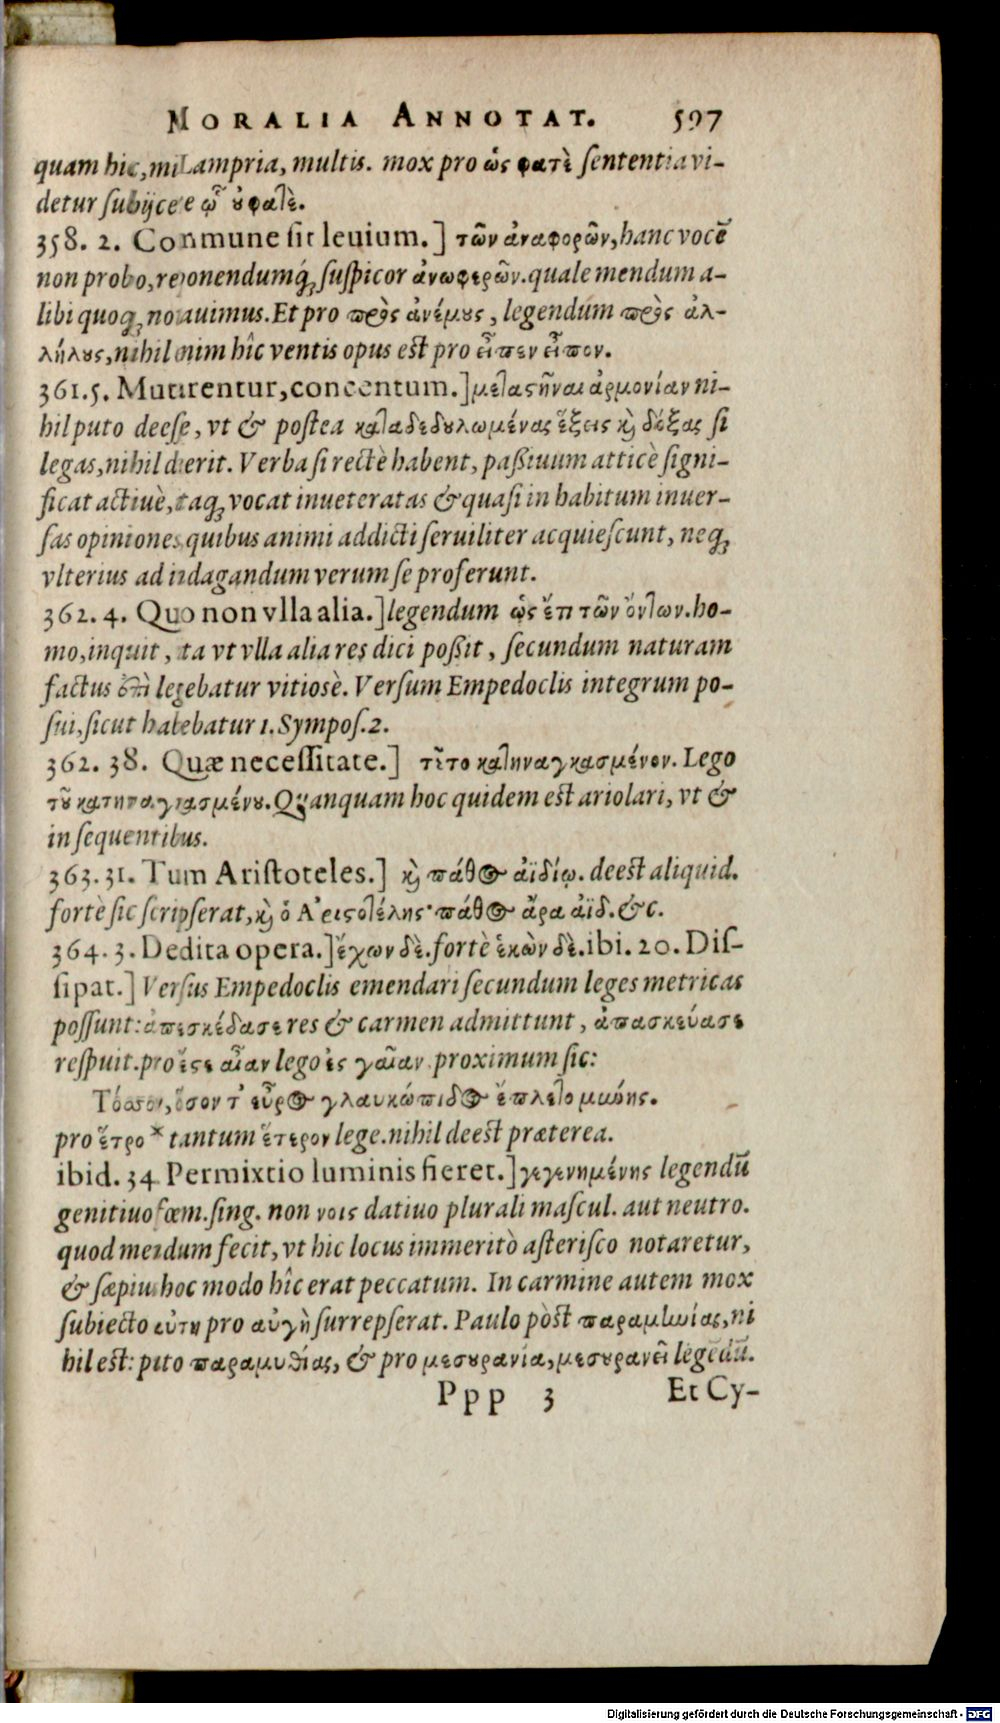 MORALIA ANNOTAT. 597
quam hic, mi Lampria, multis. mox pro ὡς φατὲ sententia vi-
detur subijcere ᾧ οὐ φατὲ.
358. 2. Commune sit leuium.] τῶν ἀναφορῶν, hanc vocē
non probo, reponendumq́ꝫ suspicor ἀνωφερῶν. quale mendum a-
libi quoqꝫ notauimus. Et pro πρὸς ἀνέμους, legendum πρὸς ἀλ-
λήλους, nihil enim hîc ventis opus est pro εἶπεν εἶπον.
361. 5. Mutirentur, concentum.] μεταστῆναι ἁρμονίαν ni-
hil puto deesse, vt & postea καταδεδουλωμένας ἕξεις καὶ δόξας si
legas, nihil deerit. Verba si rectè habent, paßiuum atticè signi-
ficat actiuè, itaqꝫ vocat inueteratas & quasi in habitum inuer-
sas opiniones quibus animi addicti seruiliter acquiescunt, neqꝫ
vlterius ad indagandum verum se proferunt.
362. 4. Quo non vlla alia.] legendum ὡς ἔτι τῶν ὄντων. ho-
mo, inquit, ita vt vlla alia res dici poßit, secundum naturam
factus ἐπὶ legebatur vitiosè. Versum Empedoclis integrum po-
sui, sicut habebatur 1. Sympos. 2.
362. 38. Quæ necessitate.] τῖτο κατηναγκασμένον. Lego
τοῦ κατηναγκασμένου. Quanquam hoc quidem est ariolari, vt &
in sequentibus.
363. 31. Tum Aristoteles.] καὶ πάθος ἀϊδίῳ. deest aliquid.
fortè sic scripserat, καὶ ὁ Ἀριστοτέλης· πάθος ἄρα ἀϊδ. &c.
364. 3. Dedita opera.] ἔχων δὲ. fortè ἑκὼν δὲ. ibi. 20. Dis-
sipat.] Versus Empedoclis emendari secundum leges metricas
possunt: ἀπεσκέδασε res & carmen admittunt, ἀπασκεύασε
respuit. pro ἔστε αἶαν lego ἐς γαῖαν. proximum sic:
Τόσσον, ὅσον τ' εὖρος γλαυκώπιδος ἔπλετο μήνης.
pro ἕτρο * tantum ἕτερον lege. nihil deest præterea.
ibid. 34 Permixtio luminis fieret.] γεγενημένης legendū
genitiuo fœm. sing. non νοις datiuo plurali mascul. aut neutro.
quod mendum fecit, vt hic locus immeritò asterisco notaretur,
& sæpius hoc modo hîc erat peccatum. In carmine autem mox
subiecto εὐτη pro αὐγὴ surrepserat. Paulo pòst παραμωίας, ni
hil est: puto παραμυθίας, & pro μεσουρανία, μεσουρανεῖ legēdū.
Ppp 3 Et Cy-
Digitalisierung gefördert durch die Deutsche Forschungsgemeinschaft - DFG